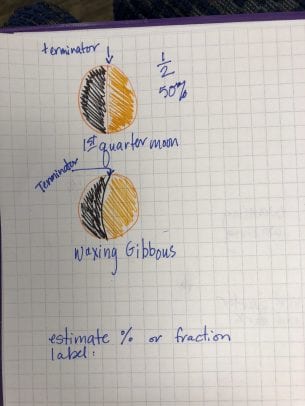 terminator
1/2
50%
1st quarter moon
Terminator
Waxing Gibbous
estimate % or fraction
label: